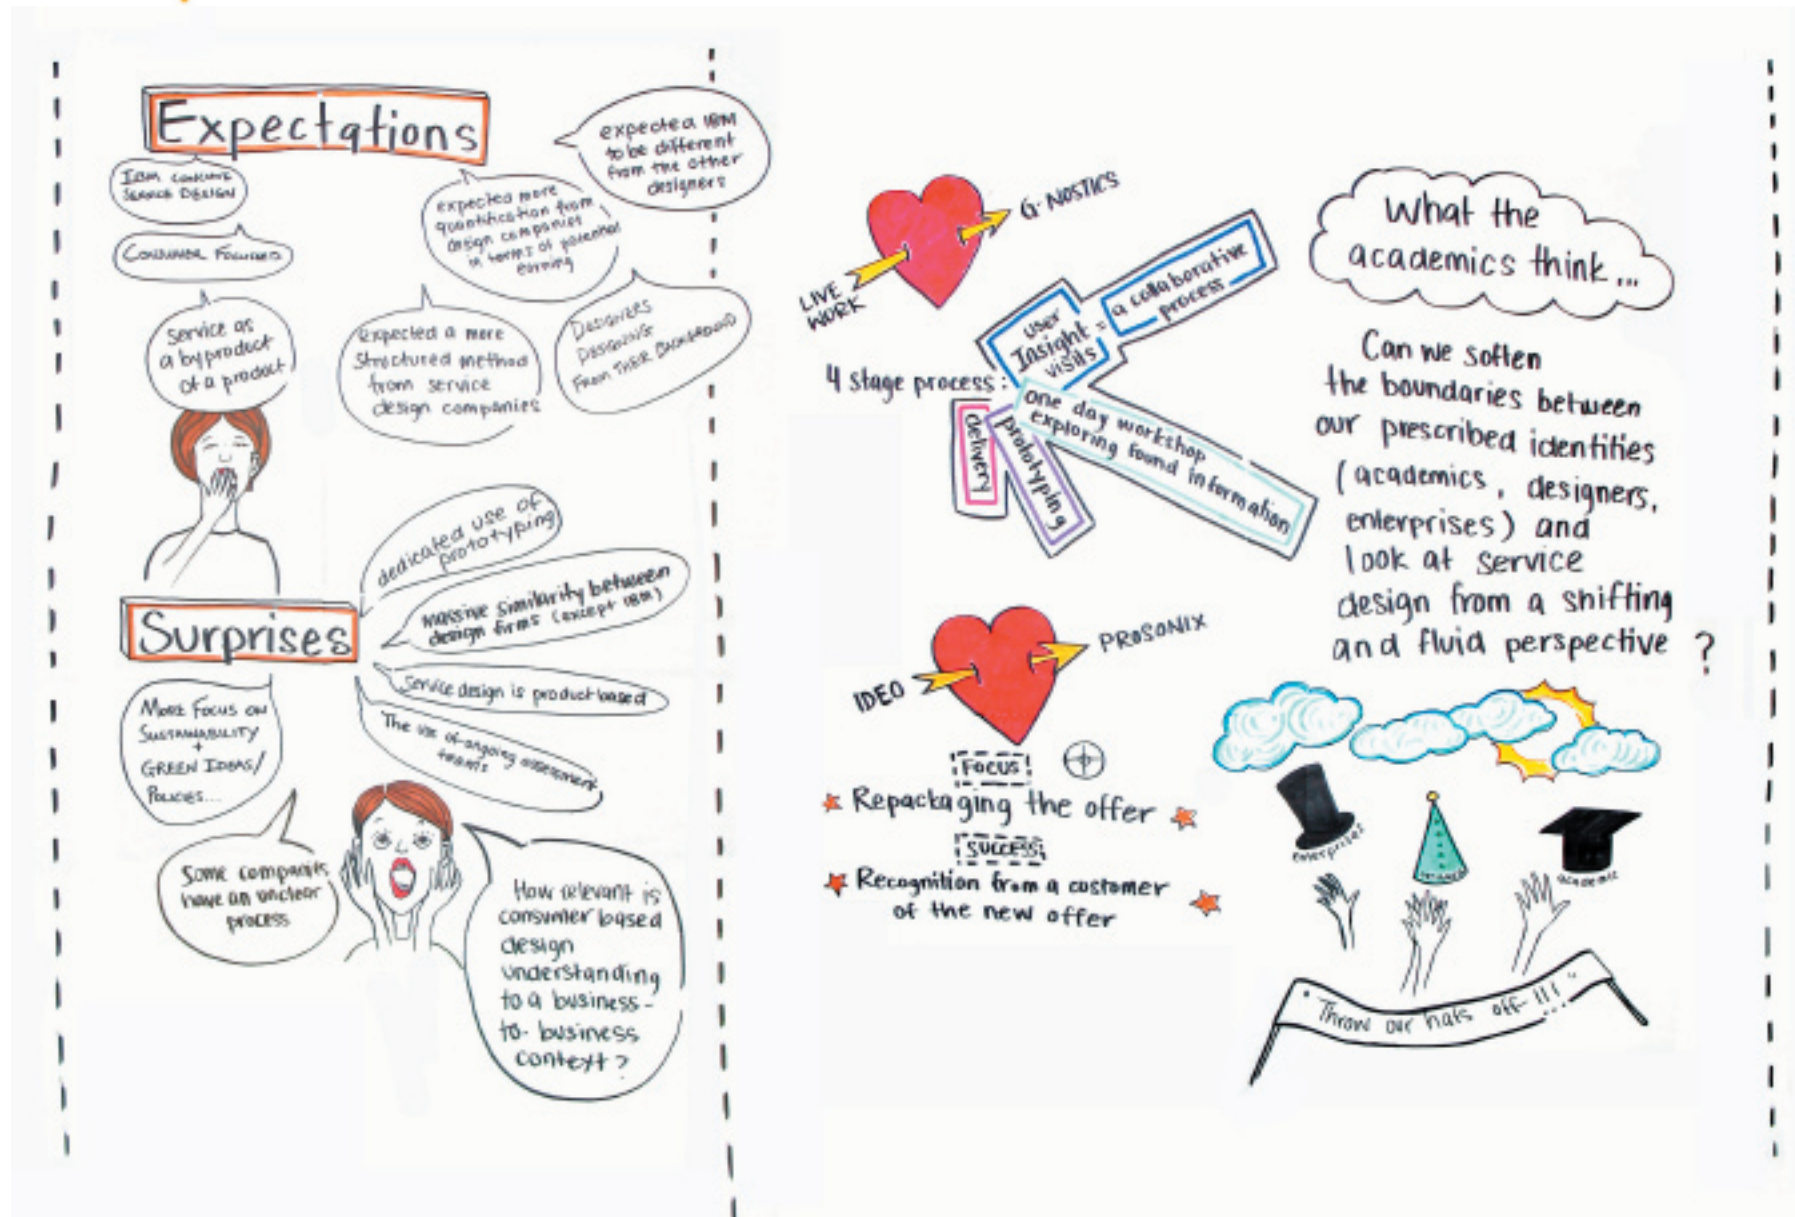 Expectations
IBM
SERVICE DESIGN
CONSUMER FOCUSED
service as
a by product
of a product
expected more
quantification from
design companies
in terms of potential
earning
expected IBM
to be different
from the other
designers
expected a more
structured method
from service
design companies
DESIGNERS
DESIGNING
FROM THEIR BACKGROUND
Surprises
dedicated use of
prototyping
massive similarity between
design firms (except IBM)
Service design is product based
The use of ongoing assessment
teams
MORE FOCUS ON
SUSTAINABILITY
+
GREEN IDEAS/
POLICIES...
Some companies
have an unclear
process
How relevant is
consumer based
design
understanding
to a business-
to-business
context?
LIVE
WORK
G-NOSTICS
4 stage process:
user
Insight
visits
= a collaborative
process
one day workshop
exploring found information
prototyping
delivery
IDEO
PROSONIX
FOCUS
Repackaging the offer
SUCCESS
Recognition from a customer
of the new offer
What the
academics think...
Can we soften
the boundaries between
our prescribed identities
(academics, designers,
enterprises) and
look at service
design from a shifting
and fluid perspective ?
enterprises
academic
"Throw our hats off-!!!"